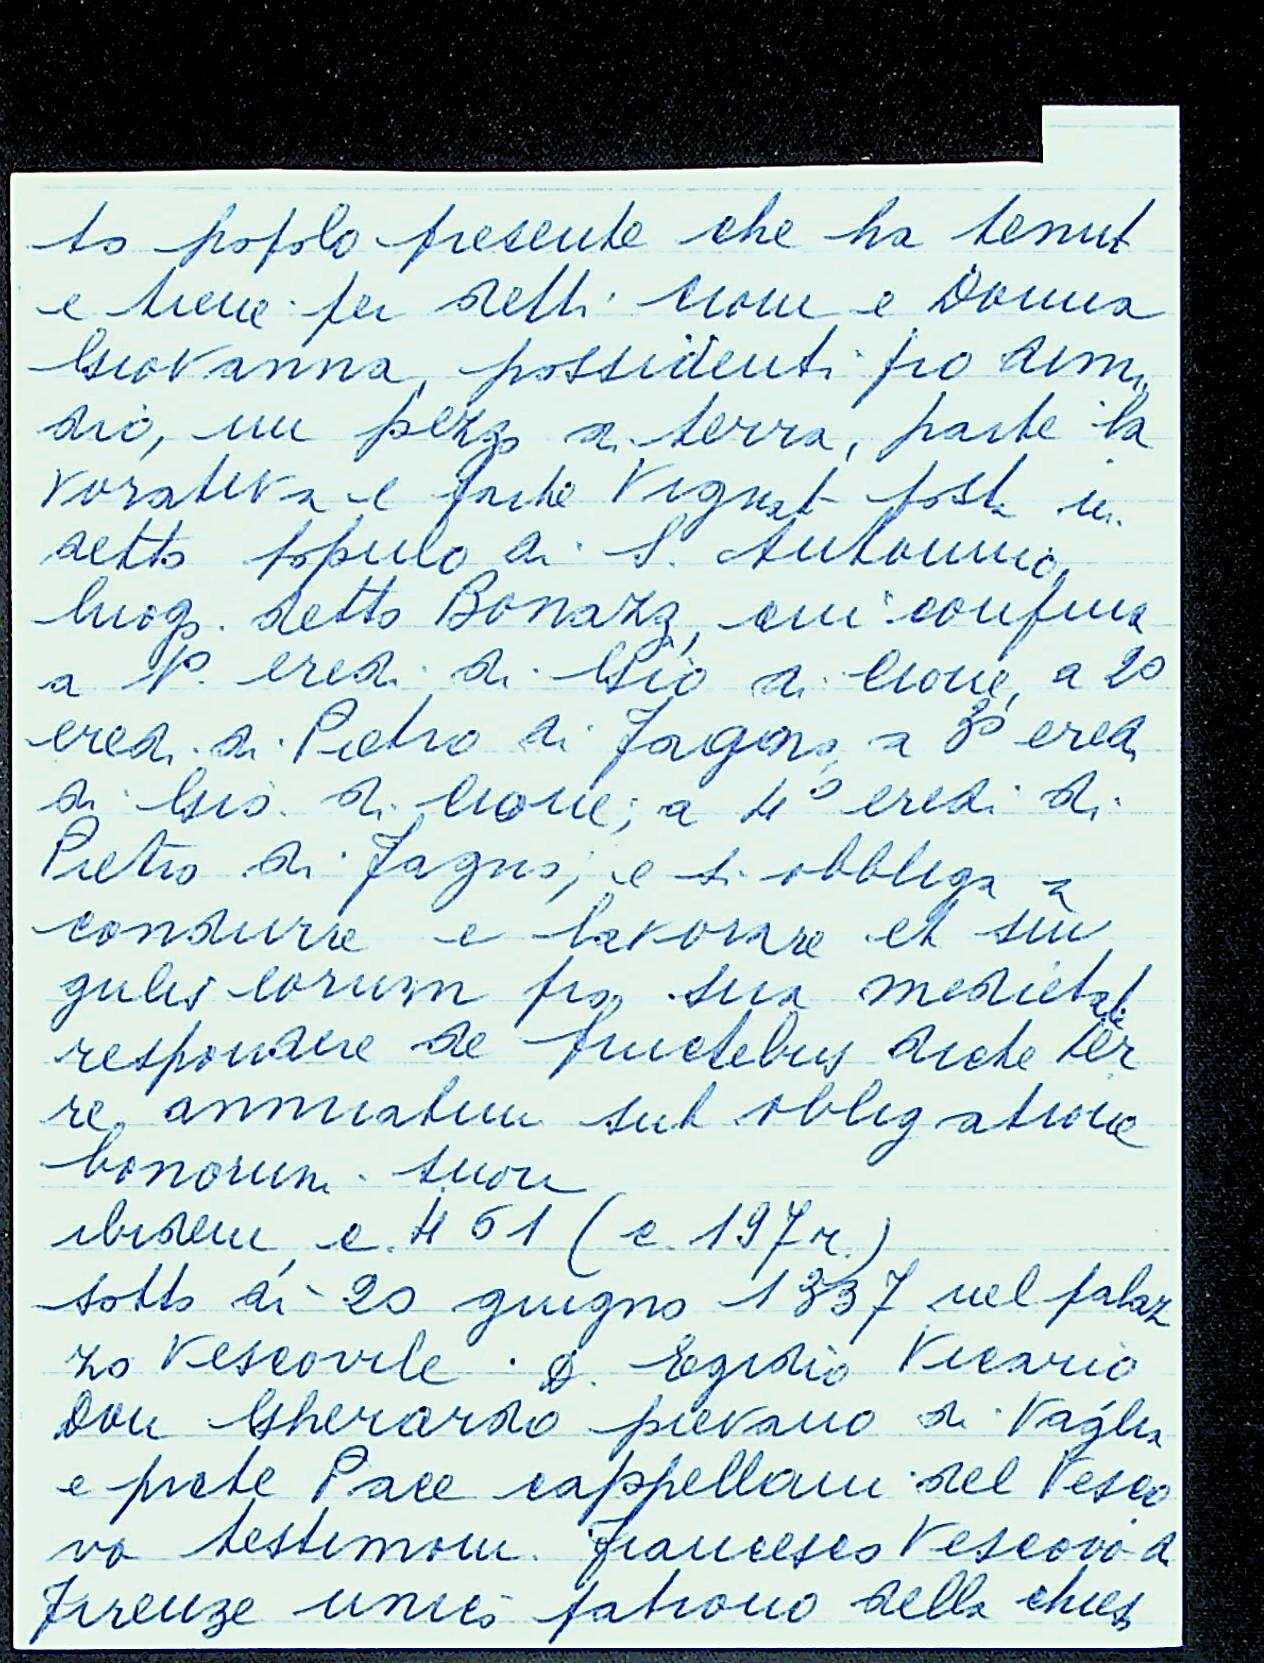 to popolo presente che ha tenut
e tiene per detti Cione e Donna
Giovanna, possidenti pro dimi
dio, un pezzo di terra, parte la
vorativa e parte vignat posta in
detto popolo di S. Antonino,
luogo detto Bonazza, cui confina
a 1º eredi di Gio di Cione, a 2º
eredi di Pietro di Jagno, a 3º eredi
di Gio. di Cione; a 4º eredi di
Pietro di Jagno; e si obbliga a
condurre e lavorare et sin
gulis eorum pro sua medietate
respondere de fructibus dicte ter
re annuatim sub obligatione
bonorum suor
ibidem, c. 461 (c 197r.)
sotto dì 20 giugno 1337 nel palaz
zo Vescovile. D. Egidio Vicario
Don Gherardo pievano di Vaglia
e prete Pace cappellani del Vesco
vo testimoni. Francesco Vescovo di
Firenze unico patrono della chies